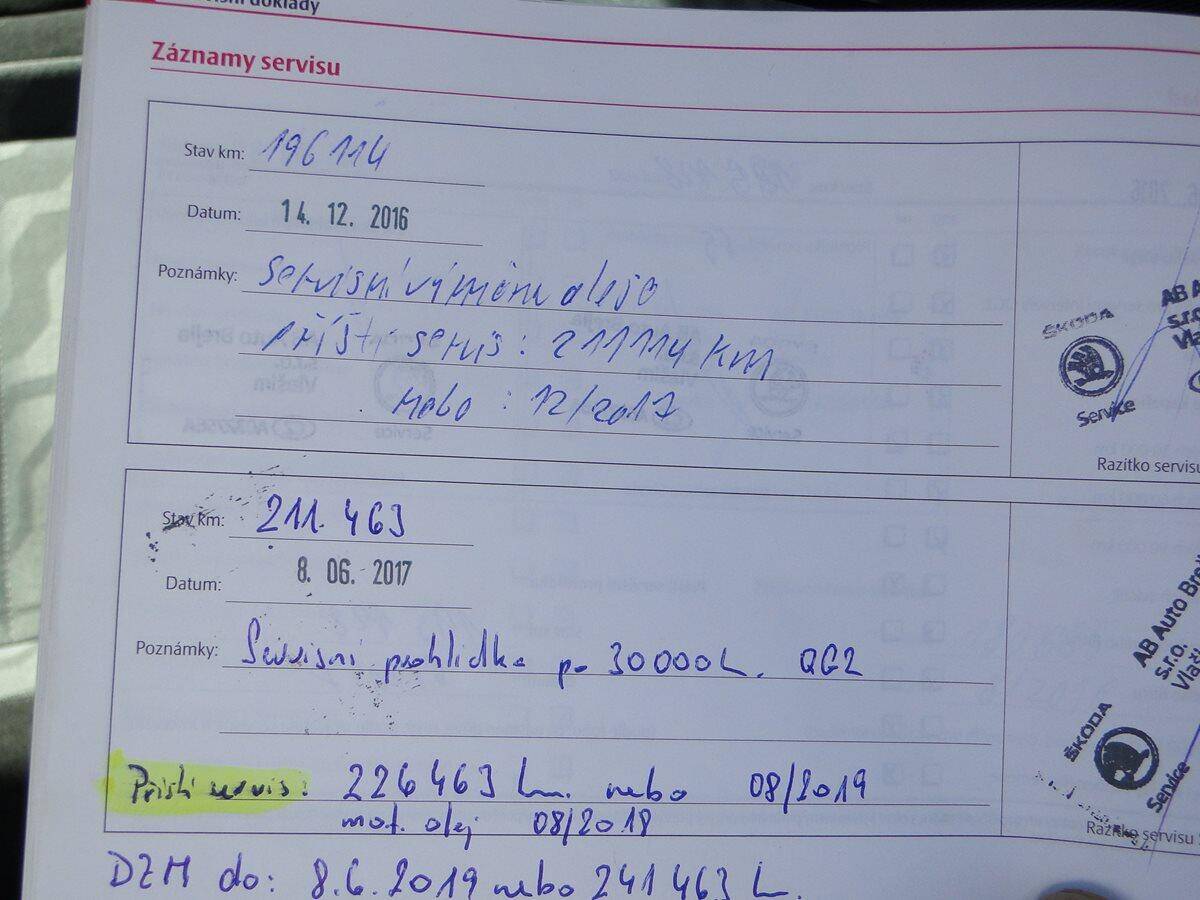 doklady
Záznamy servisu
Stav km: 196 114
Datum: 14. 12. 2016
Poznámky: Servisní výměna oleje
Příští servis: 211114 km
nebo: 12/2017
ŠKODA
Service
AB A
s.r.o
Vla
Razítko servisu
Stav km: 211.463
Datum: 8. 06. 2017
Poznámky: Servisní prohlídka po 30000 km. QG2
Příští servis: 226463 km. nebo 08/2019
mot. olej 08/2018
ŠKODA
Service
AB Auto Brej
s.r.o.
Vlaš
Razítko servisu
DZM do: 8.6.2019 nebo 241463 km.